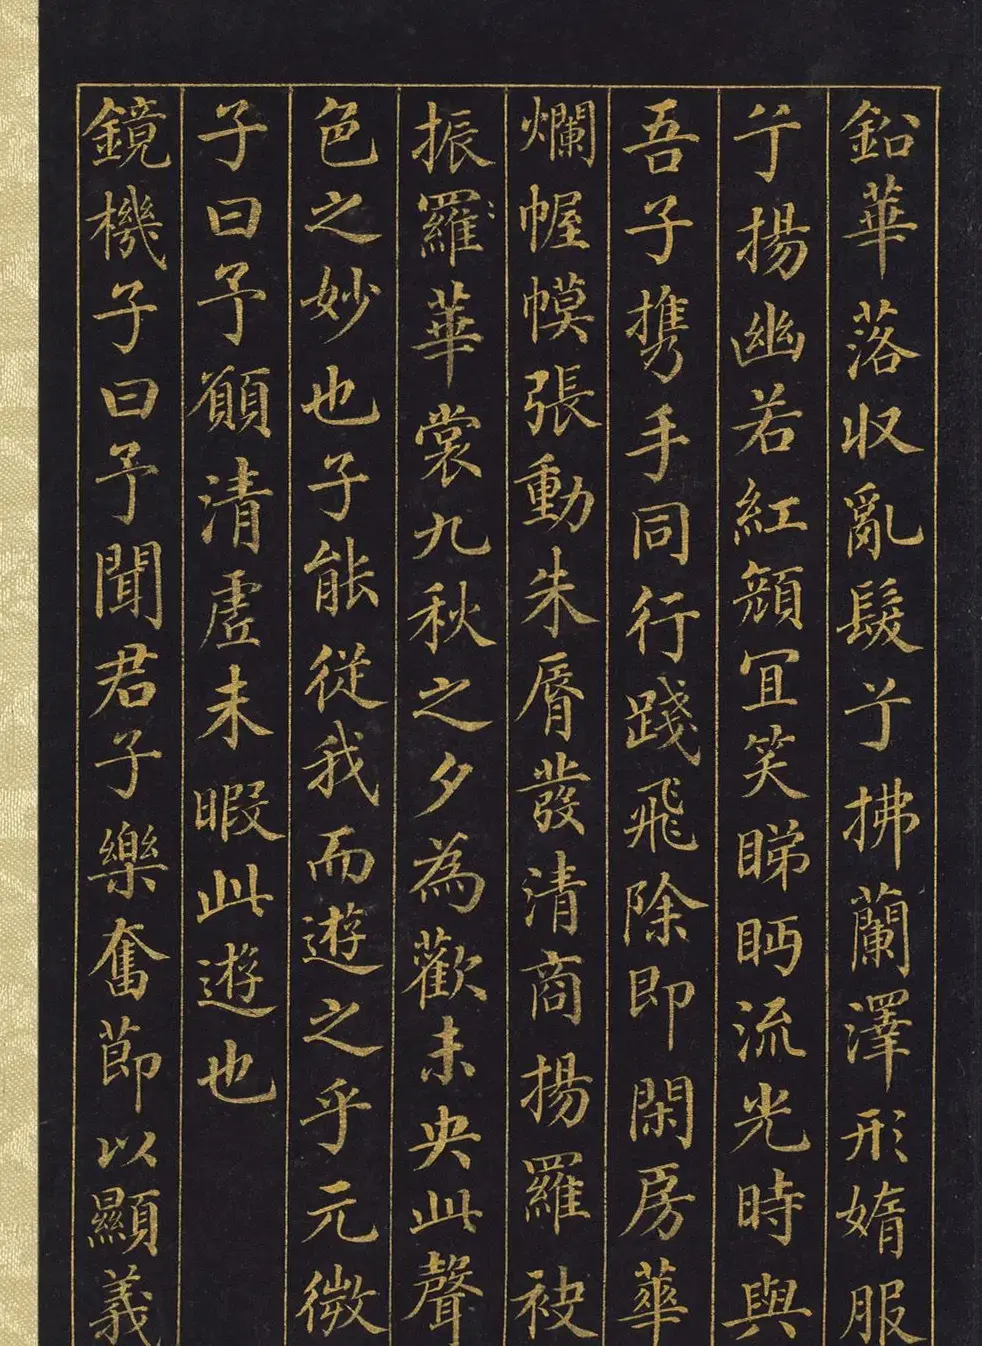 鉛華落収亂髮兮拂蘭澤形媠服
兮揚幽若紅顔宜笑睇眄流光時與
吾子携手同行踐飛除即閑房華
爛幄幙張動朱脣發清商揚羅袂
振羅華裳九秋之夕為歡未央此聲
色之妙也子能從我而遊之乎元微
子曰予願清虛未暇此遊也
鏡機子曰予聞君子樂奮節以顯義